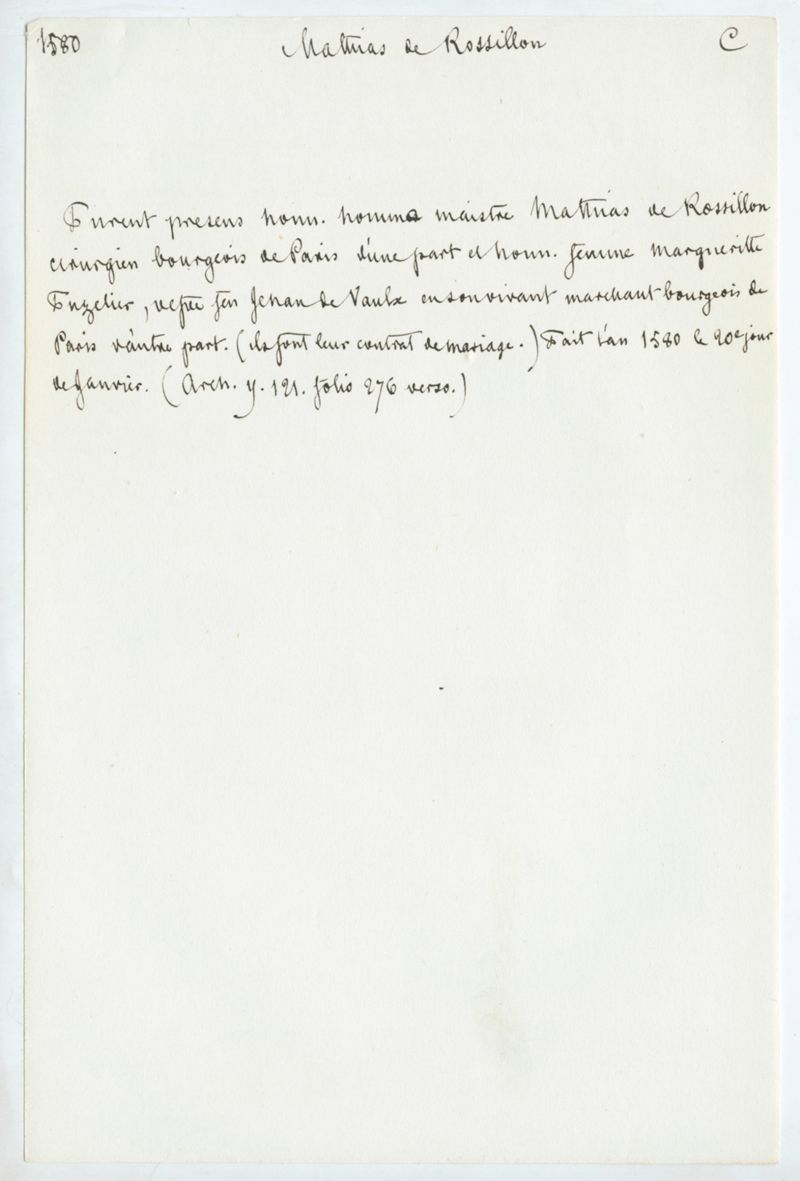 1580 Mathias de Rossillon C
Furent presens honn. homme maistre Mathias de Rossillon
cirurgien bourgeois de Paris d'une part et honn. femme Margueritte
Fuzelier, vefve feu Jehan de Vaulx en son vivant marchant bourgeois de
Paris d'autre part. (ils font leur contrat de mariage.) Fait l'an 1580 le 20e jour
de Janvier. (Arch. y. 121. folio 276 verso.)